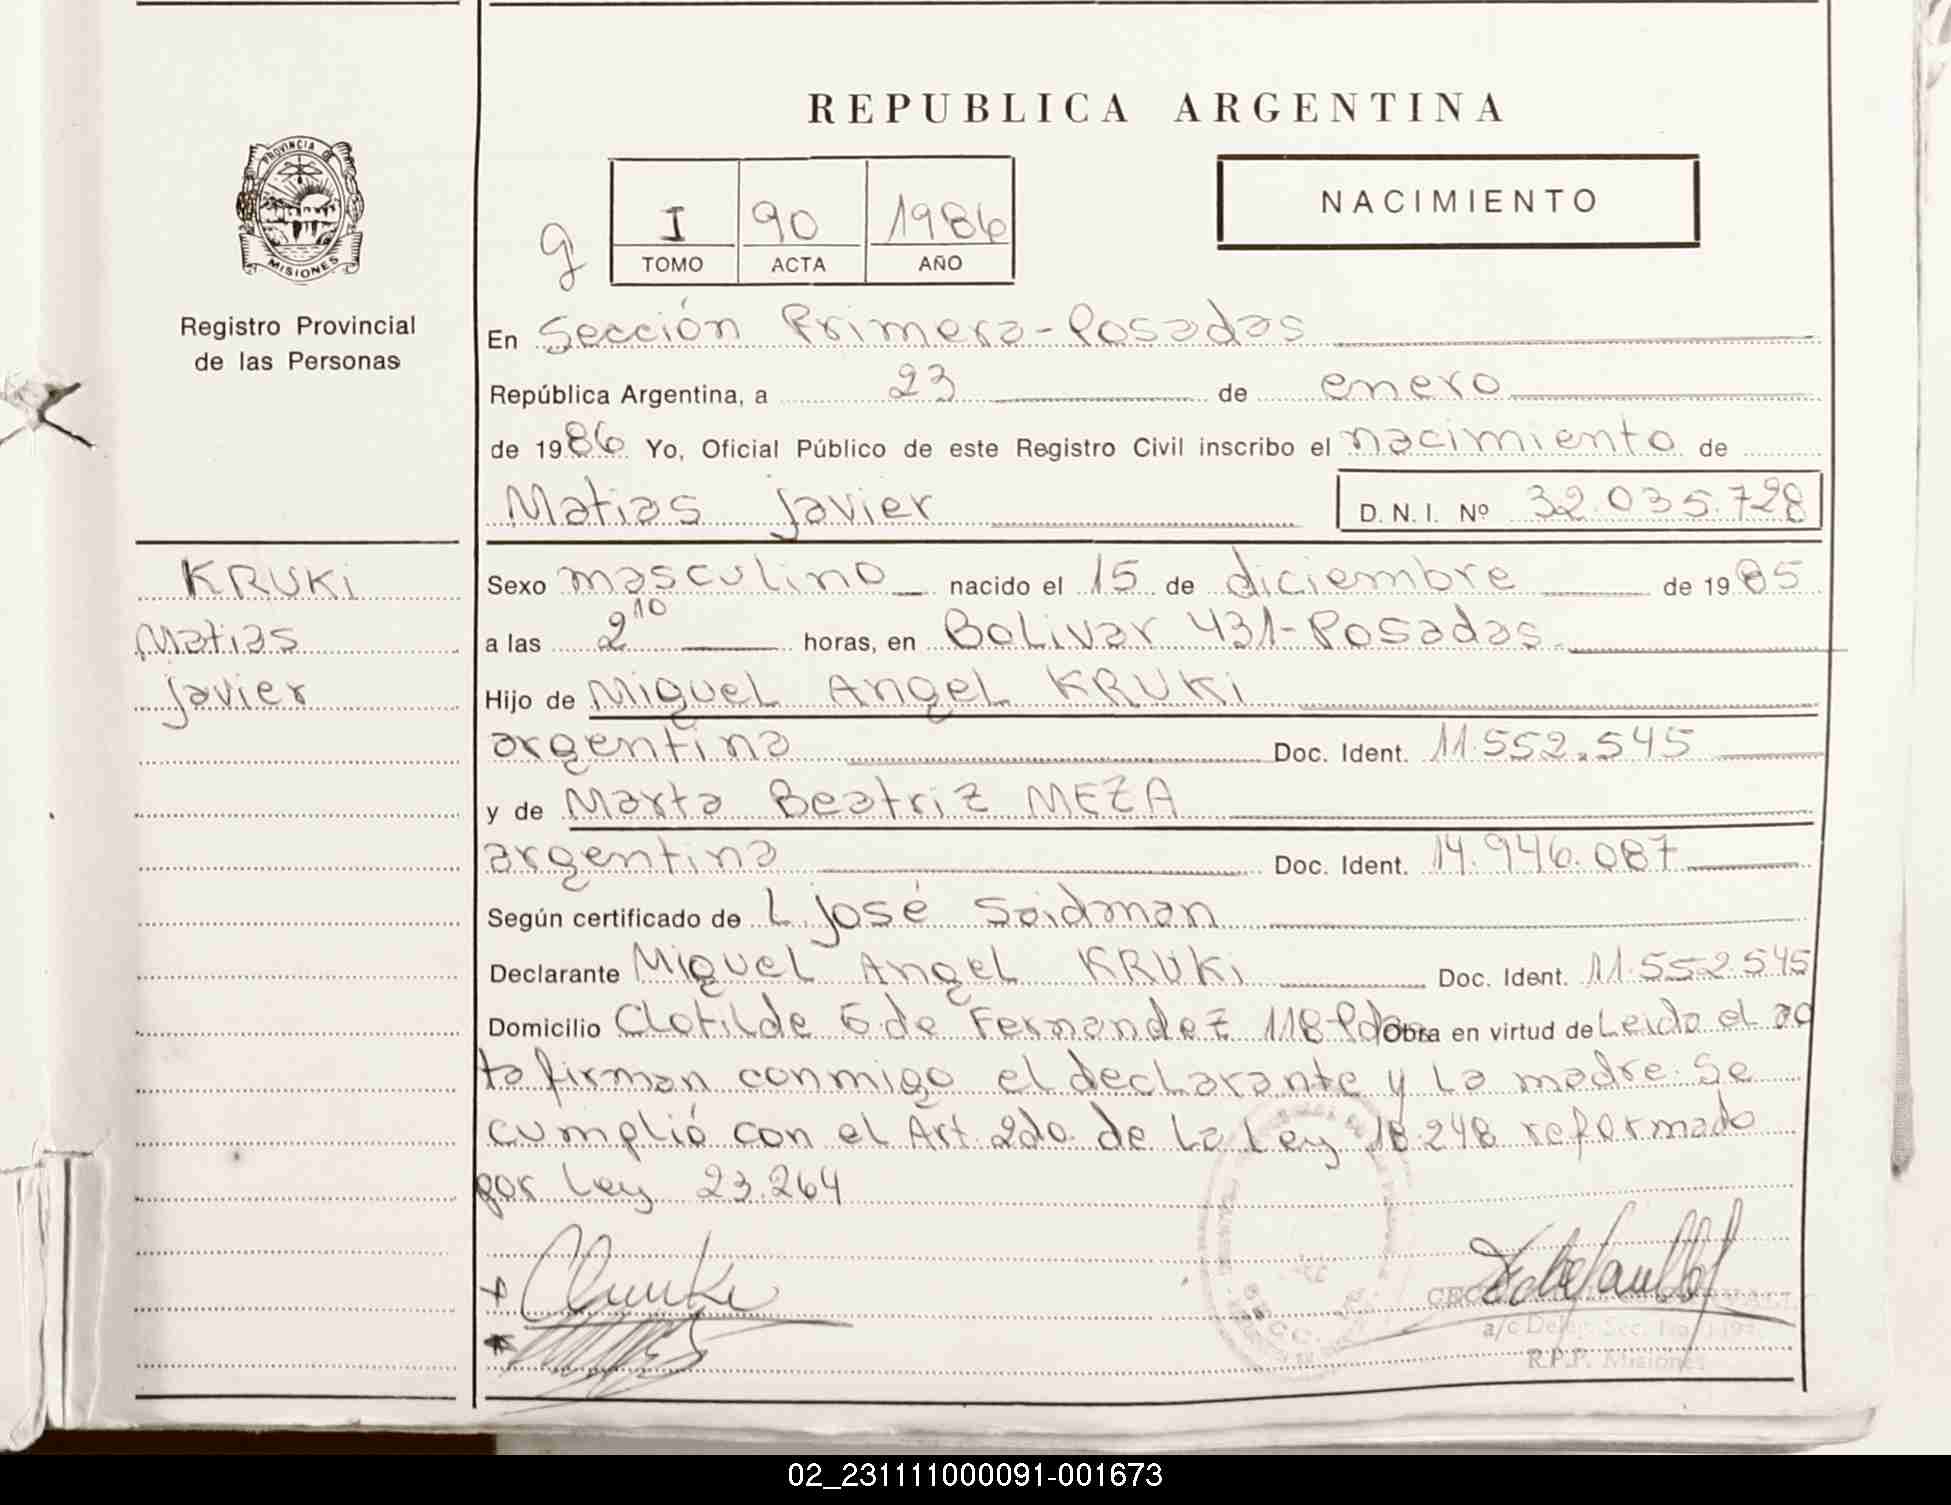 REPUBLICA ARGENTINA
PROVINCIA DE
MISIONES
Registro Provincial
de las Personas
g
I 90 1986
TOMO ACTA AÑO
NACIMIENTO
En Sección Primera-Posadas
República Argentina, a 23 de enero
de 1986 Yo, Oficial Público de este Registro Civil inscribo el nacimiento de
Matias Javier D. N. I. Nº 32.035.728
KRUKi
Matias
Javier
Sexo masculino nacido el 15 de diciembre de 1985
a las 2 10 horas, en Bolivar 431-Posadas.
Hijo de Miguel Angel KRUKi
argentina Doc. Ident. 11.552.545
y de Marta Beatriz MEZA
argentina Doc. Ident. 14.946.087
Según certificado de L. José Saidman
Declarante Miguel Angel KRUKi Doc. Ident. 11.552.545
Domicilio Clotilde G. de Fernandez 118-Pdas Obra en virtud de Leida el ac
ta firman conmigo el declarante y la madre. Se
cumplió con el Art. 2do. de la Ley 18.248 reformado
por Ley 23.264
a/c Deleg. Sec.
R.P.P. Misiones
02_231111000091-001673